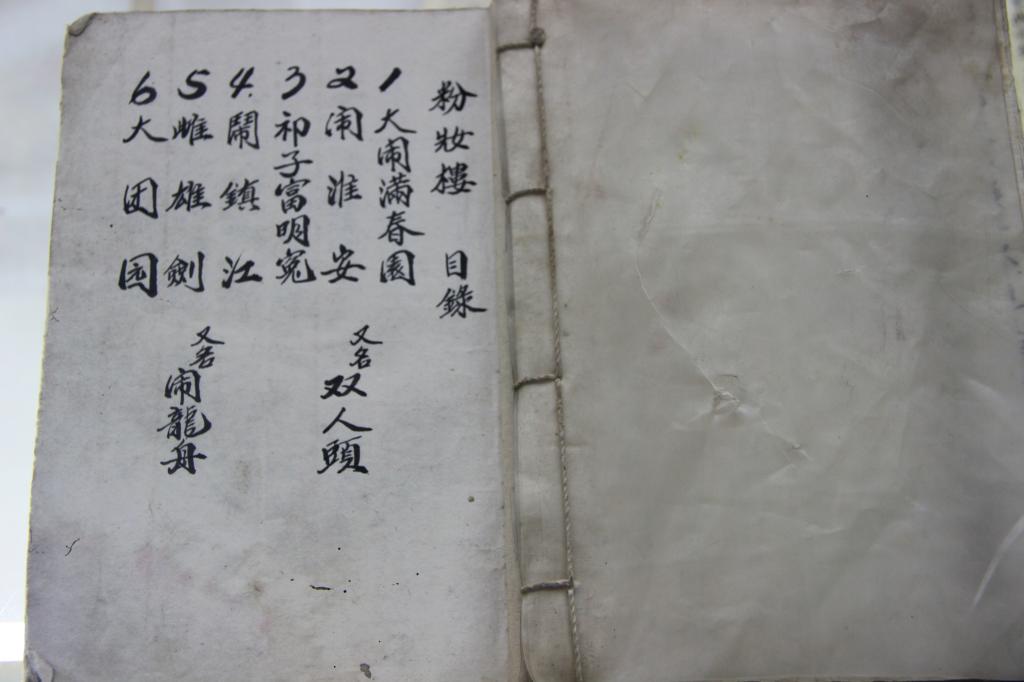 粉妝樓 目錄
1 大闹滿春園
2 闹淮安 又名双人頭
3 祁子富明冤
4. 鬧鎮江
5 雌雄劍 又名闹龍舟
6 大团园